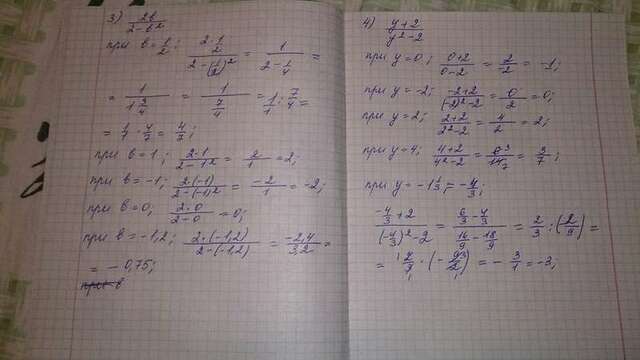 3) 2b/(2-b²)
при b=1/2; (2·1/2)/(2-(1/2)²) = 1/(2-1/4) =
= 1/(1 3/4) = 1/(7/4) = 1/1 : 7/4 =
= 1/1 · 4/7 = 4/7;
при b=1; (2·1)/(2-1²) = 2/1 = 2;
при b=-1; (2·(-1))/(2-(-1)²) = -2/1 = -2;
при b=0; (2·0)/(2-0) = 0;
при b=-1,2; (2·(-1,2))/(2-(-1,2)) = -2,4/3,2 =
= -0,75;
4) (y+2)/(y²-2)
при y=0; (0+2)/(0-2) = 2/-2 = -1;
при y=-2; (-2+2)/((-2)²-2) = 0/2 = 0;
при y=2; (2+2)/(2²-2) = 4/2 = 2;
при y=4; (4+2)/(4²-2) = 6³/14₇ = 3/7;
при y=-1 1/3 = -4/3;
(-4/3+2)/((-4/3)²-2) = (6/3-4/3)/(16/9-18/9) = 2/3 : (2/9) =
= 2/3 · (-9/2) = -3/1 = -3;